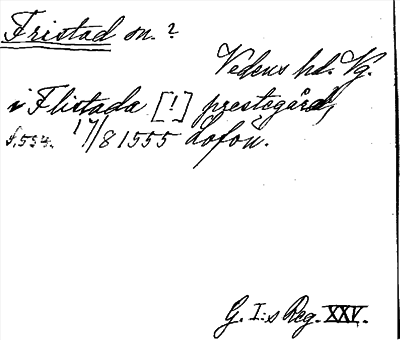 Fristad sn. ?
Vedens hd. Vg.
i Flistada [!] prestegård,
s. 554. 17/8 1555 Lofön.
G. I:s Reg. XXV.